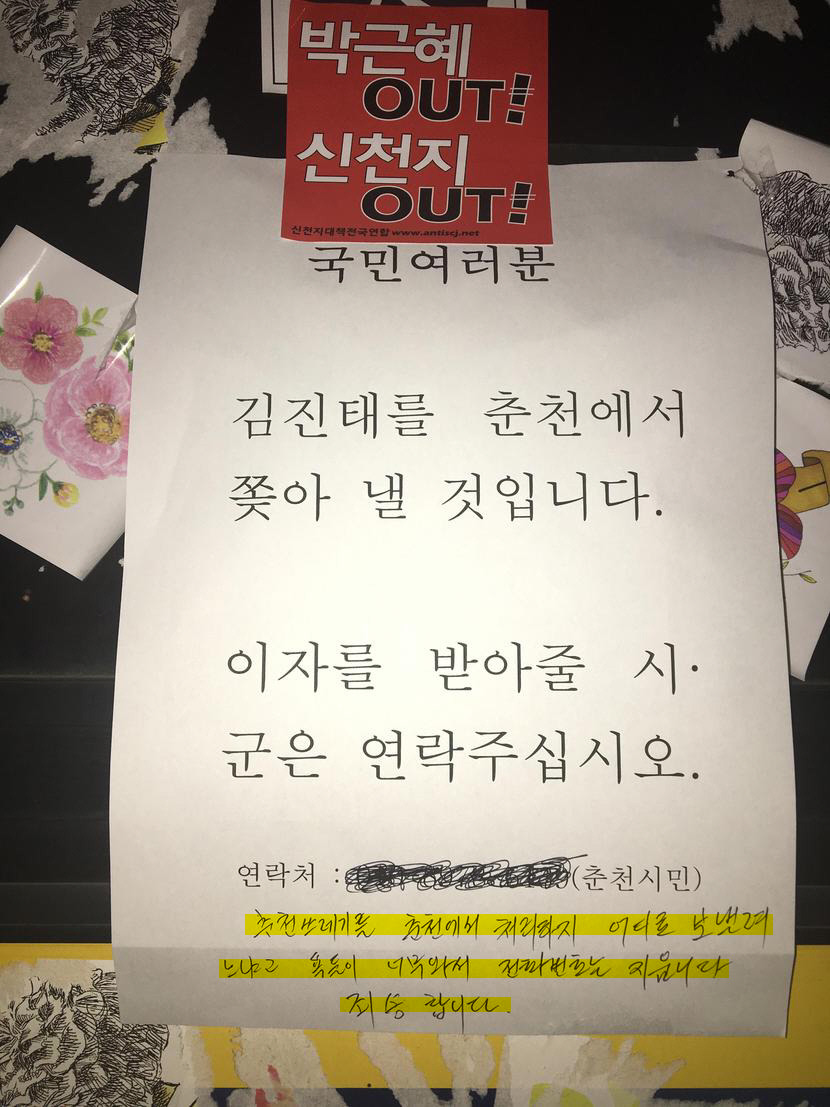 박근혜
OUT!
신천지
OUT!
신천지대책전국연합 www.antiscj.net
국민여러분
김진태를 춘천에서
쫒아 낼 것입니다.
이자를 받아줄 시·
군은 연락주십시오.
연락처 : (춘천시민)
춘천쓰레기를 춘천에서 처리하지 어디로 보낼려
느냐고 욕들이 너무와서 전화번호는 지웁니다
죄송합니다.